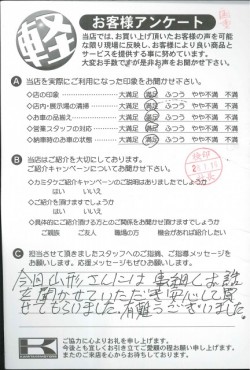 軽
お客様アンケート
当店では、お買い上げ頂いたお客様の声を可能
な限り現場に反映し、お客様により良い商品と
サービスを提供する事に努めています。
大変お手数ですが是非お声をお聞かせ下さい。
A 当店を実際にご利用になった印象をお聞かせ下さい。
◇店の印象 大満足 満足 ふつう やや不満 不満
◇店内・展示場の清掃 大満足 満足 ふつう やや不満 不満
◇お車の品揃え 大満足 満足 ふつう やや不満 不満
◇営業スタッフの対応 大満足 満足 ふつう やや不満 不満
◇納車時のお車の状態 大満足 満足 ふつう やや不満 不満
B 当店はご紹介を大切にしております。
ご紹介キャンペーンについてお聞かせ下さい。
◇カミタケご紹介キャンペーンのご説明はありましたでしょうか
はい いいえ
◇ご紹介をお受け頂けますでしょうか
はい いいえ
◇具体的にご紹介頂ける方とのご関係をお聞かせ頂けますか
ご親族 ご友人 職場の方 機会があれば紹介したい
C 担当させて頂きましたスタッフへのご指摘、ご指導メッセージを
お願いします。応援メッセージもぜひお願いします。
今回 小形さんには 事細かくお話
を聞かせていただき安心して買わ
せてもらいました。有難うございました。
K
ご協力に心よりお礼を申し上げます。
今後とも宜しくお引き立てご愛顧の程お願い申し上げます。
またのご来店を心からお待ちしております。